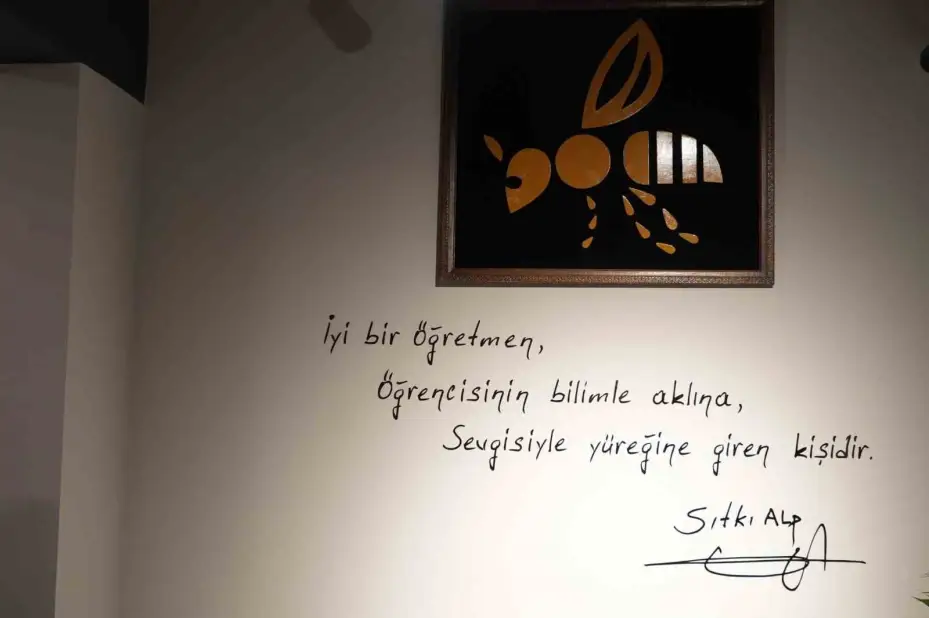 İyi bir Öğretmen,
Öğrencisinin bilimle aklına,
Sevgisiyle yüreğine giren kişidir.
Sıtkı ALP